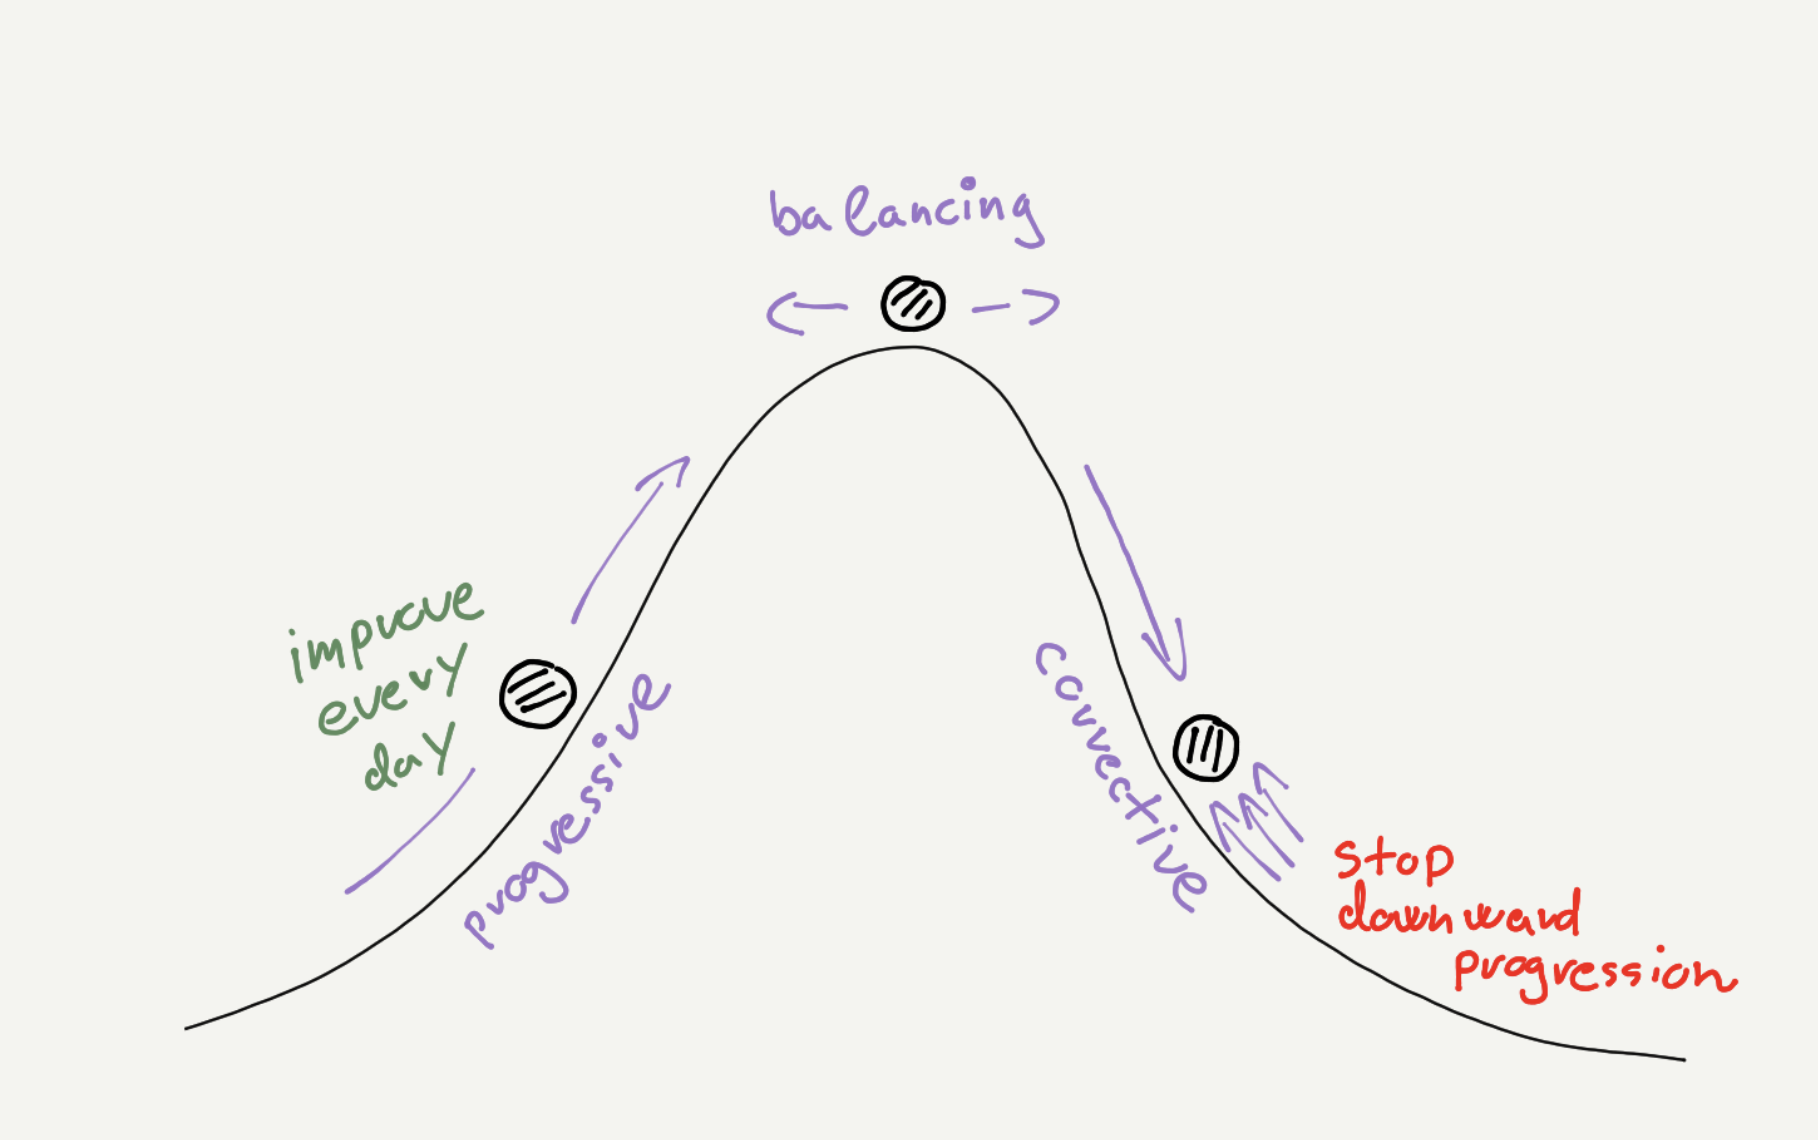 balancing
improve
every
day
progressive
corrective
stop
downward
progression